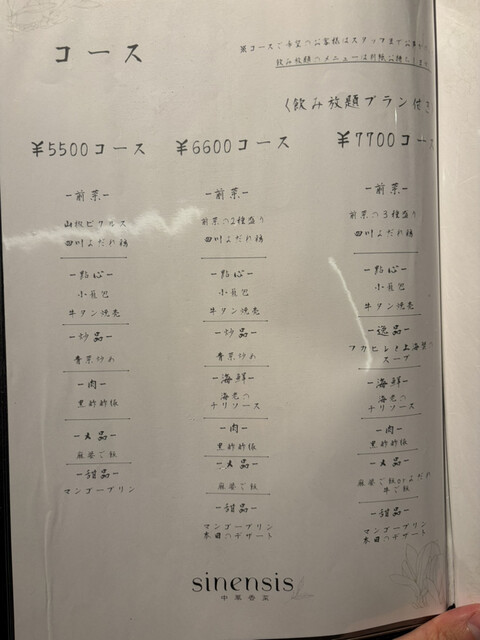 コース
※コースご希望のお客様はスタッフまでお声が
飲み放題のメニューは別紙ご
〈飲み放題プラン付き
¥5500コース
-前菜-
山椒ピクルス
四川よだれ鶏
-點心-
小籠包
牛タン焼売
-炒品-
青菜炒め
-肉-
黒酢酢豚
-主品-
麻婆ご飯
-甜品-
マンゴープリン
¥6600コース
-前菜-
前菜の2種盛り
四川よだれ鶏
-點心-
小籠包
牛タン焼売
-炒品-
青菜炒め
-海鮮-
海老の
チリソース
-肉-
黒酢酢豚
-主品-
麻婆ご飯
-甜品-
マンゴープリン
本日のデザート
¥7700コース
-前菜-
前菜の3種盛り
四川よだれ鶏
-點心-
小籠包
牛タン焼売
-逸品-
フカヒレと上海蟹の
スープ
-海鮮-
海老の
チリソース
-肉-
黒酢酢豚
-主品-
麻婆ご飯orよだれ
牛ご飯
-甜品-
マンゴープリン
本日のデザート
sinensis
中華香菜